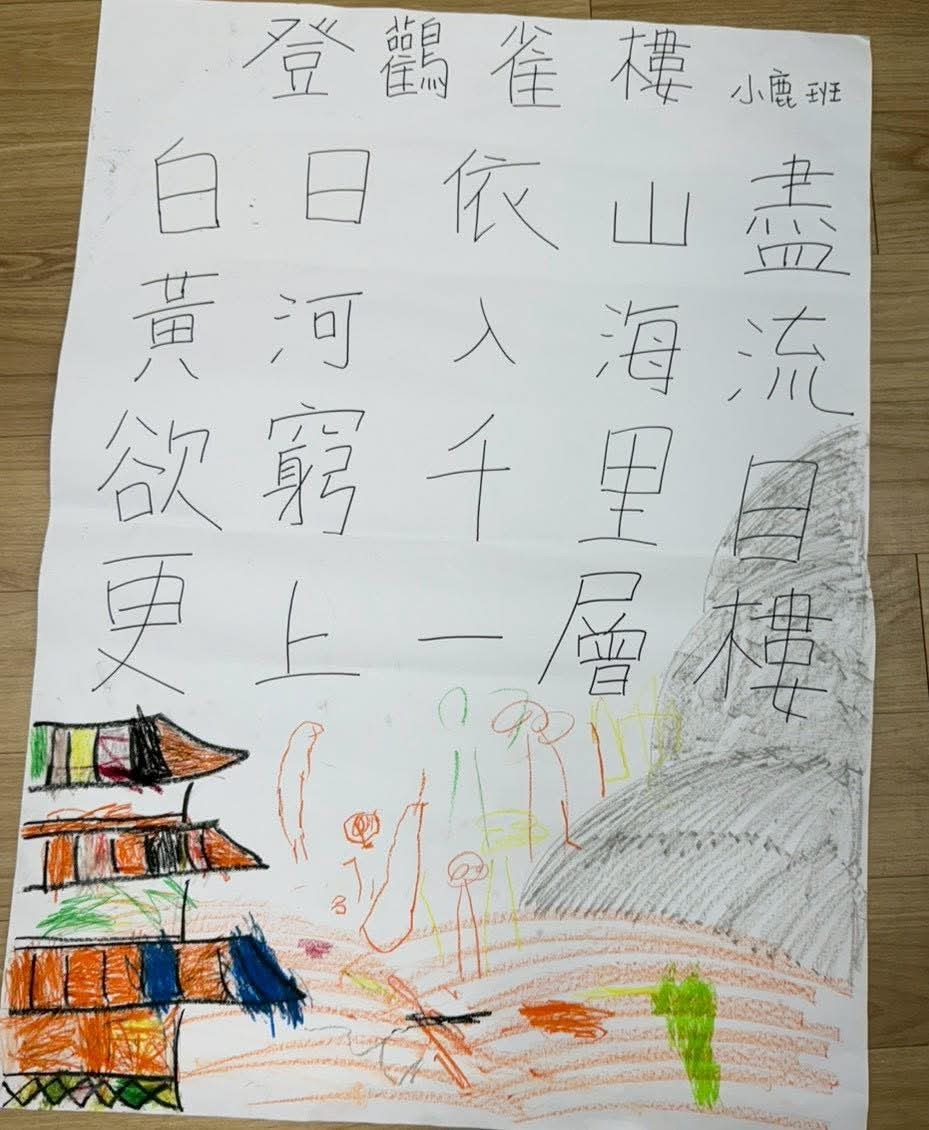 登鸛雀樓 小鹿班
白日依山盡
黃河入海流
欲窮千里目
更上一層樓